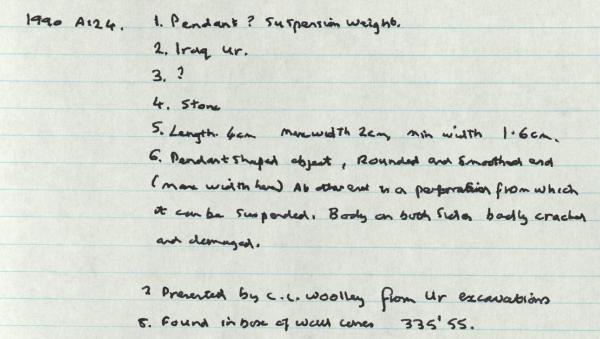 1990 A:24. 1. Pendant? Suspension weight.
2. Iraq Ur.
3. ?
4. Stone
5. Length. 6cm max width 2cm, min width 1.6cm.
6. Pendant shaped object, Rounded and Smoothed end
(max width here) At other end is a perforation from which
it can be suspended. Body on both sides badly cracked
and damaged.
7 Presented by C.L. Woolley from Ur excavations
8. Found in box of wall cones 335'55.